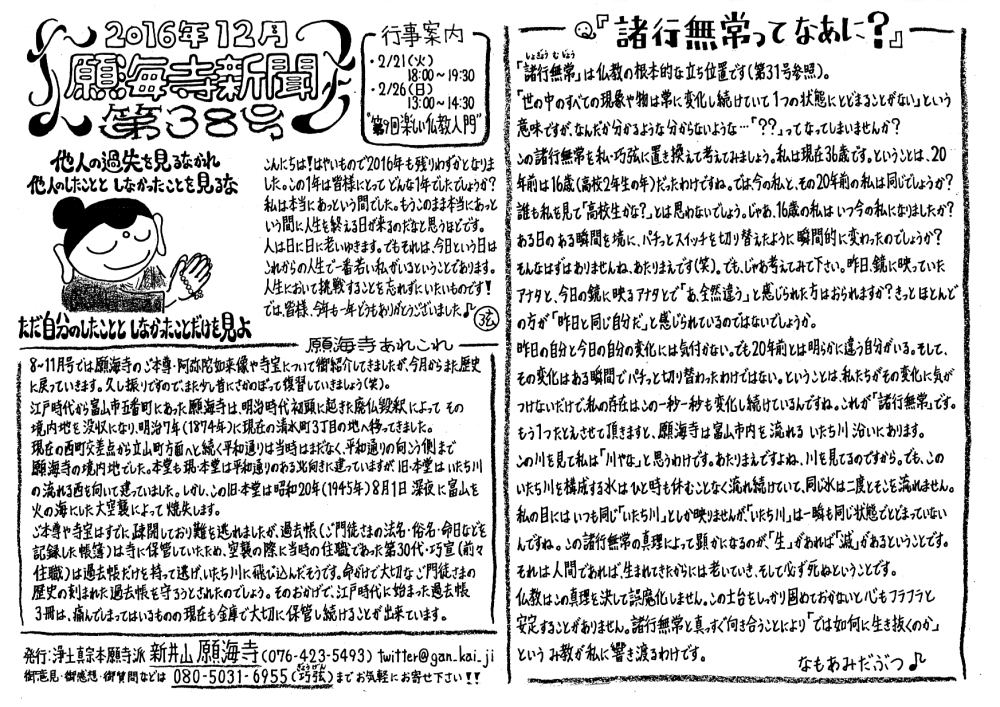 2016年12月
願海寺新聞
第38号
行事案内
・2/21(火)
18:00〜19:30
・2/26(日)
13:00〜14:30
"第9回楽しい仏教入門"
他人の過失を見るなかれ
他人のしたことと しなかったことを見るな
ただ自分のしたことと しなかったことだけを見よ
こんにちは!はやいもので2016年も残りわずかとなりま
した。この1年は皆様にとって どんな1年でしたでしょうか?
私は本当にあっという間でした。もうこのまま本当にあっと
いう間に人生を終える日が来るのだなと思うほどです。
人は日に日に老いゆきます。でもそれは、今日という日は
これからの人生で一番若い私がいるということであります。
人生において挑戦することを忘れずにいたいものです!
では、皆様、今年も一年どうもありがとうございました♪ 弦
願海寺あれこれ
8〜11月号では願海寺のご本尊・阿弥陀如来像や寺宝について御紹介してきましたが、今月からまた歴史
に戻っていきます。久し振りですので、また少し昔にさかのぼって復習していきましょう(笑)。
江戸時代から富山市五番町にあった願海寺は、明治時代初頭に起きた廃仏毀釈によって その
境内地を没収になり、明治7年(1874年)に現在の清水町3丁目の地へ移ってきました。
現在の西町交差点から立山町方面へと続く平和通りは当時はまだなく、平和通りの向こう側まで
願海寺の境内地でした。本堂も現・本堂は平和通りのある北向きに建っていますが、旧・本堂は いたち川
の流れる西を向いて建っていました。しかし、この旧・本堂は昭和20年(1945年)8月1日 深夜に富山を
火の海にした大空襲によって焼失します。
ご本尊や寺宝はすでに疎開しており難を逃れましたが、過去帳(ご門徒さまの法名・俗名・命日などを
記録した帳簿)は寺に保管していたため、空襲の際に当時の住職であった第30代・巧宣(前々
住職)は過去帳だけを持って逃げ、いたち川に飛び込んだそうです。命がけで大切なご門徒さまの
歴史の刻まれた過去帳を守ろうとされたのでしょう。そのおかげで、江戸時代に始まった過去帳
3冊は、痛んでしまってはいるものの現在も金庫で大切に保管し続けることが出来ています。
発行:浄土真宗本願寺派 新井山 願海寺(076-423-5493) twitter@gan_kai_ji
御意見・御感想・御質問などは 080-5031-6955(巧弦)までお気軽にお寄せ下さい!!
Q『諸行無常ってなあに?』
「諸行無常」は仏教の根本的な立ち位置です(第31号参照)。
「世の中のすべての現象や物は常に変化し続けていて1つの状態にとどまることがない」という
意味ですが、なんだか分かるような分からないような…「??」ってなってしまいませんか?
この諸行無常を私・巧弦に置き換えて考えてみましょう。私は現在36歳です。ということは、20
年前は16歳(高校2年生の年)だったわけですね。では今の私と、その20年前の私は同じでしょうか?
誰も私を見て「高校生かな?」とは思わないでしょう。じゃあ、16歳の私は いつ今の私になりましたか?
ある日の ある瞬間を境に、パチっとスイッチを切り替えたように瞬間的に変わったのでしょうか?
そんなはずはありませんね、あたりまえです(笑)。でも、じゃあ考えてみて下さい。昨日、鏡に映っていた
アナタと、今日の鏡に映るアナタとで「あ、全然違う」と感じられた方はおられますか?きっとほとんど
の方が「昨日と同じ自分だ」と感じられているのではないでしょうか。
昨日の自分と今日の自分の変化には気付かない。でも20年前とは明らかに違う自分がいる。そして、
その変化はある瞬間でパチっと切り替わったわけではない。ということは、私たちがその変化に気が
つけないだけで、私の存在はこの一秒一秒も変化し続けているんですね。これが「諸行無常」です。
もう1つたとえさせて頂きますと、願海寺は富山市内を流れる いたち川 沿いにあります。
この川を見て私は「川やな」と思うわけです。あたりまえですよね、川を見てるのですから。でも、この
いたち川を構成する水は ひと時も休むことなく流れ続けていて、同じ水は二度とそこを流れません。
私の目には いつも同じ「いたち川」としか映りませんが、「いたち川」は一瞬も同じ状態でとどまっていない
んですね。この諸行無常の真理によって顕かになるのが、「生」があれば「滅」があるということです。
それは人間であれば、生まれてきたからには老いていき、そして必ず死ぬということです。
仏教はこの真理を決して誤魔化しません。この土台をしっかり固めておかないと心もフラフラと
安定することがありません。諸行無常と真っすぐ向き合うことにより「では如何に生き抜くのか」
という み教が私に響き渡るわけです。
なもあみだぶつ♪